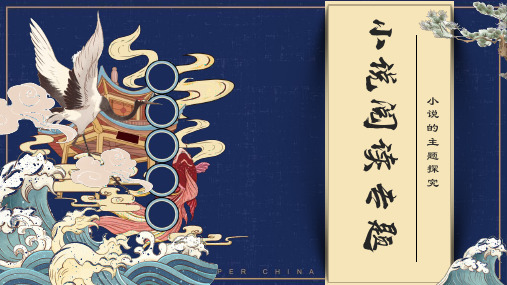 小说阅读专题
小说的主题探究
PER CHINA